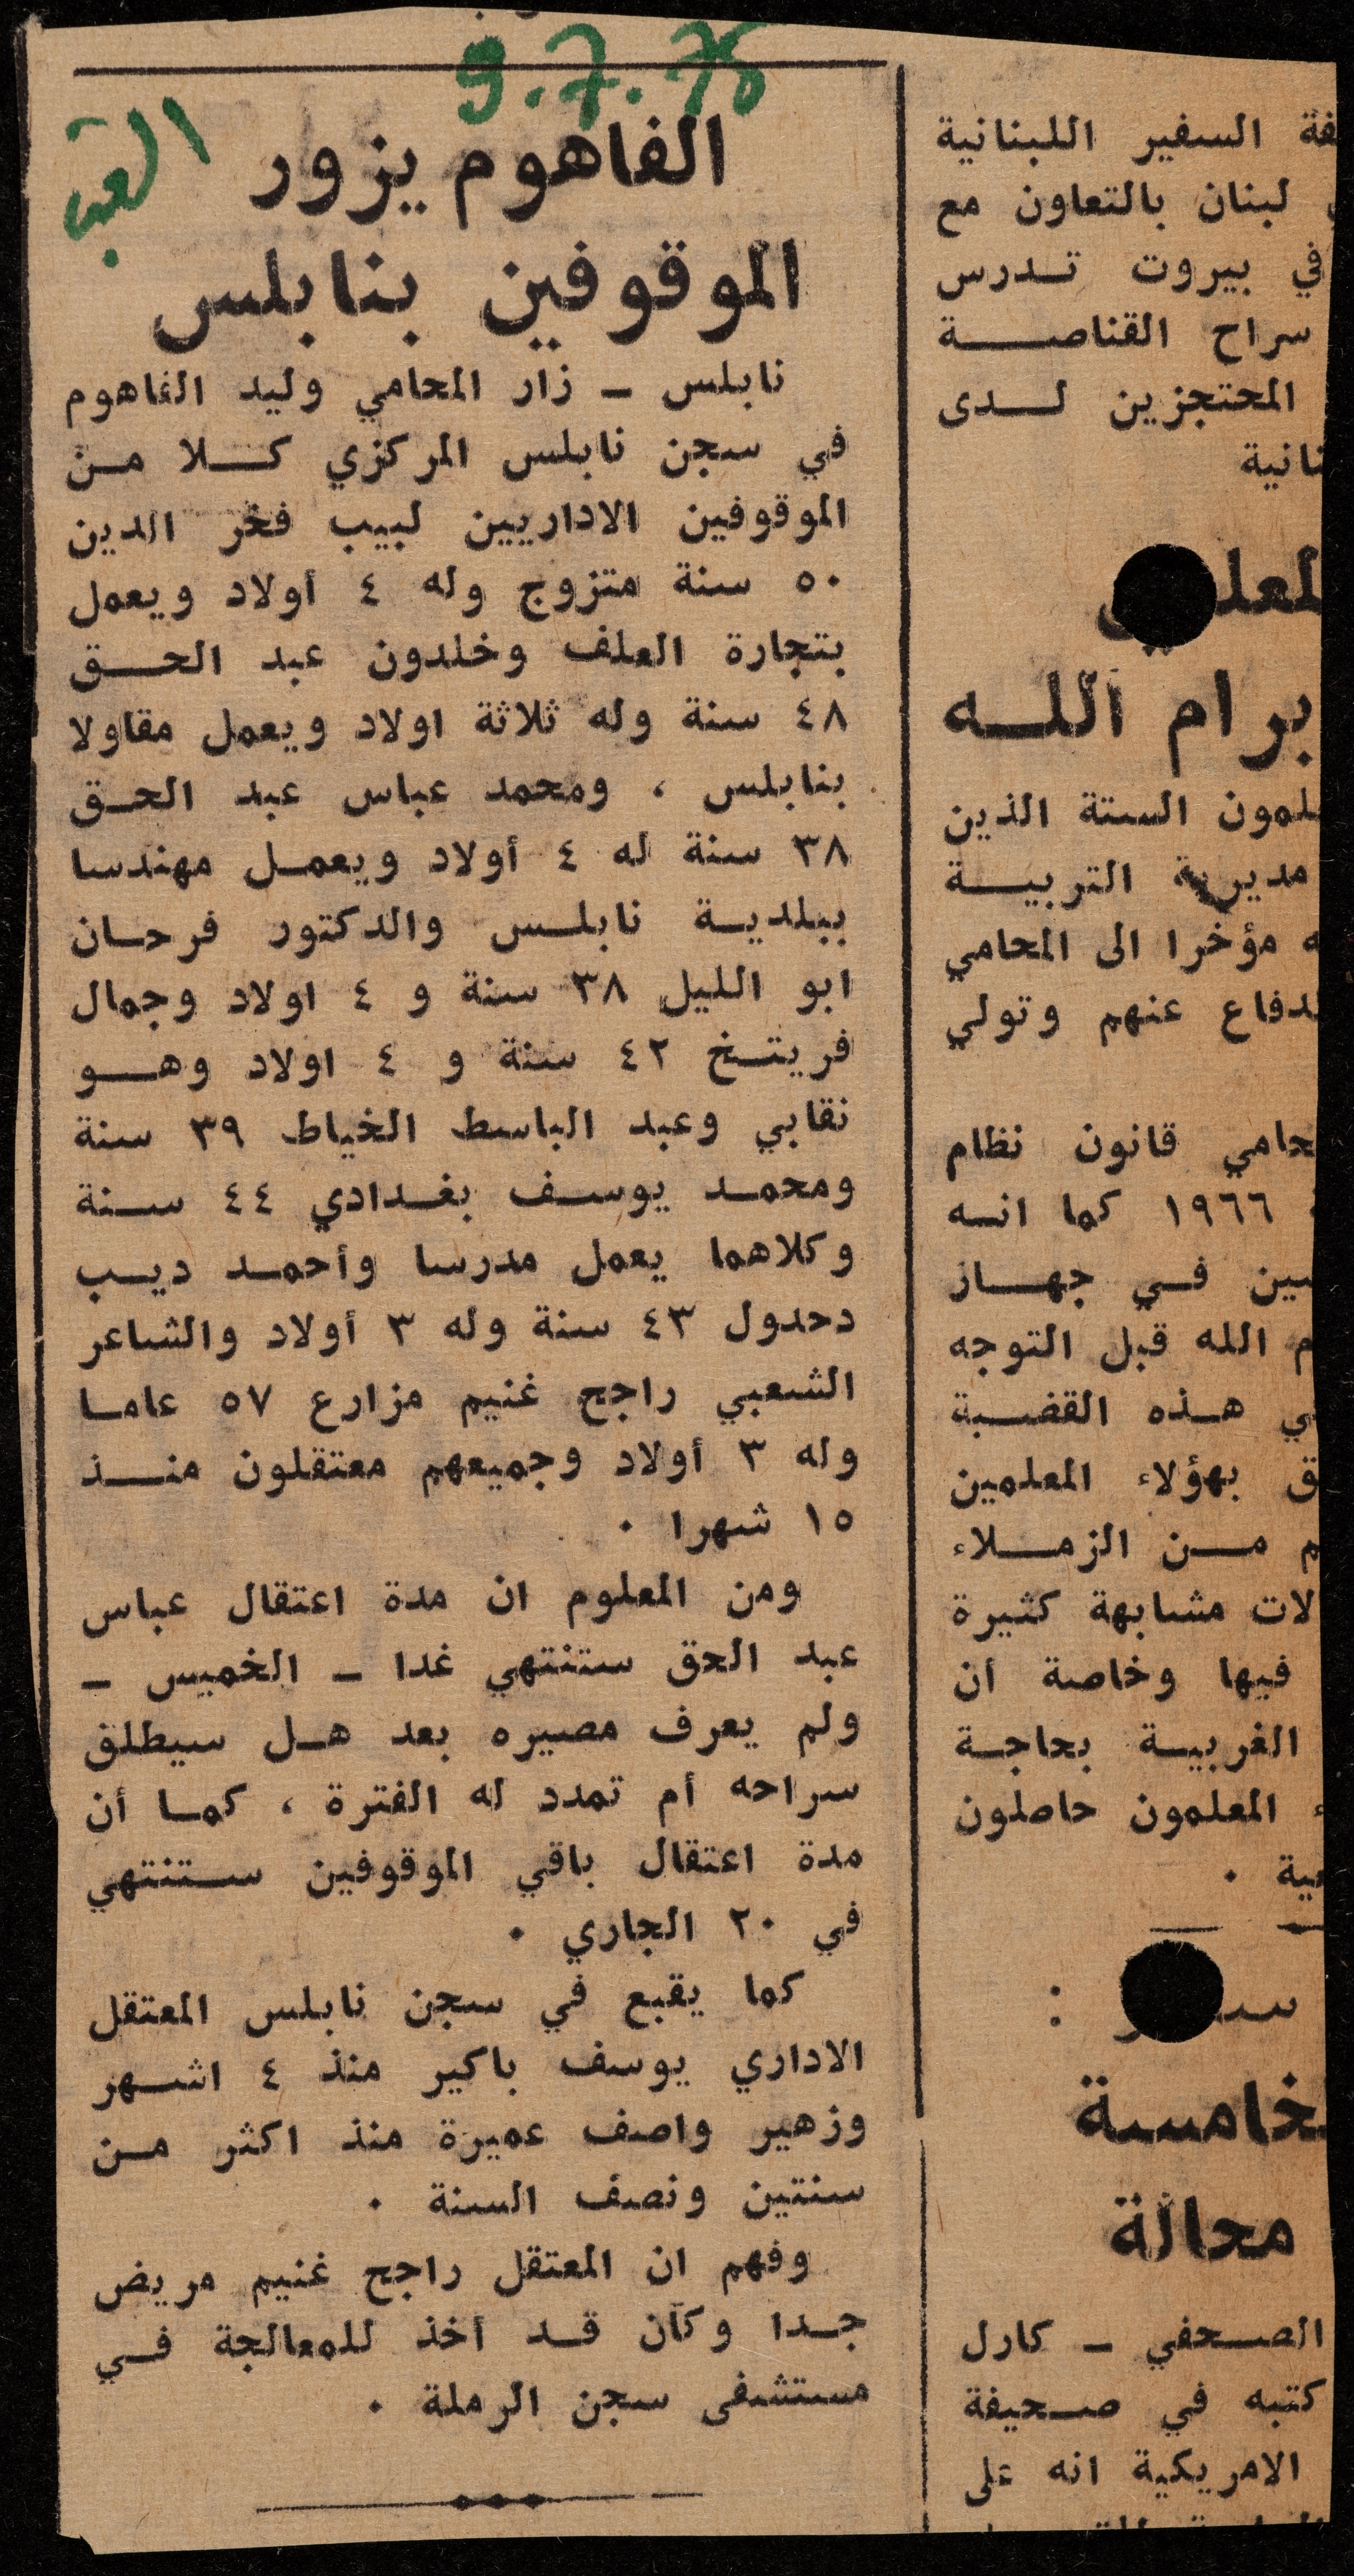 9.7.76
الفاهوم يزور
الموقوفين بنابلس
نابلس ــ زار المحامي وليد الفاهوم
في سجن نابلس المركزي كلا من
الموقوفين الاداريين لبيب فخر الدين
٥٠ سنة متزوج وله ٤ أولاد ويعمل
بتجارة العلف وخلدون عبد الحق
٤٨ سنة وله ثلاثة اولاد ويعمل مقاولا
بنابلس ، ومحمد عباس عبد الحق
٣٨ سنة له ٤ أولاد ويعمل مهندسا
ببلدية نابلس والدكتور فرحان
ابو الليل ٣٨ سنة و ٤ اولاد وجمال
فريتخ ٤٢ سنة و ٤ اولاد وهو
نقابي وعبد الباسط الخياط ٣٩ سنة
ومحمد يوسف بغدادي ٤٤ سنة
وكلاهما يعمل مدرسا وأحمد ديب
دحدول ٤٣ سنة وله ٣ أولاد والشاعر
الشعبي راجح غنيم مزارع ٥٧ عاما
وله ٣ أولاد وجميعهم معتقلون منذ
١٥ شهرا .
ومن المعلوم ان مدة اعتقال عباس
عبد الحق ستنتهي غدا ــ الخميس ــ
ولم يعرف مصيره بعد هل سيطلق
سراحه أم تمدد له الفترة ، كما أن
مدة اعتقال باقي الموقوفين ستنتهي
في ٢٠ الجاري .
كما يقبع في سجن نابلس المعتقل
الاداري يوسف باكير منذ ٤ اشهر
وزهير واصف عميرة منذ اكثر من
سنتين ونصف السنة .
وفهم ان المعتقل راجح غنيم مريض
جدا وكان قد أخذ للمعالجة في
مستشفى سجن الرملة .
السفير اللبنانية
لبنان بالتعاون مع
في بيروت تدرس
سراح القناصة
المحتجزين لدى
نانية
برام الله
لمون الستة الذين
مديرية التربية
ه مؤخرا الى المحامي
لدفاع عنهم وتولي
حامي قانون نظام
١٩٦٦ كما انه
سين في جهاز
م الله قبل التوجه
ي هذه القضية
ق بهؤلاء المعلمين
م من الزملاء
لات مشابهة كثيرة
فيها وخاصة أن
الغربية بحاجة
المعلمون حاصلون
ية .
خامسة
محالة
الصحفي ــ كارل
كتبه في صحيفة
الامريكية انه على